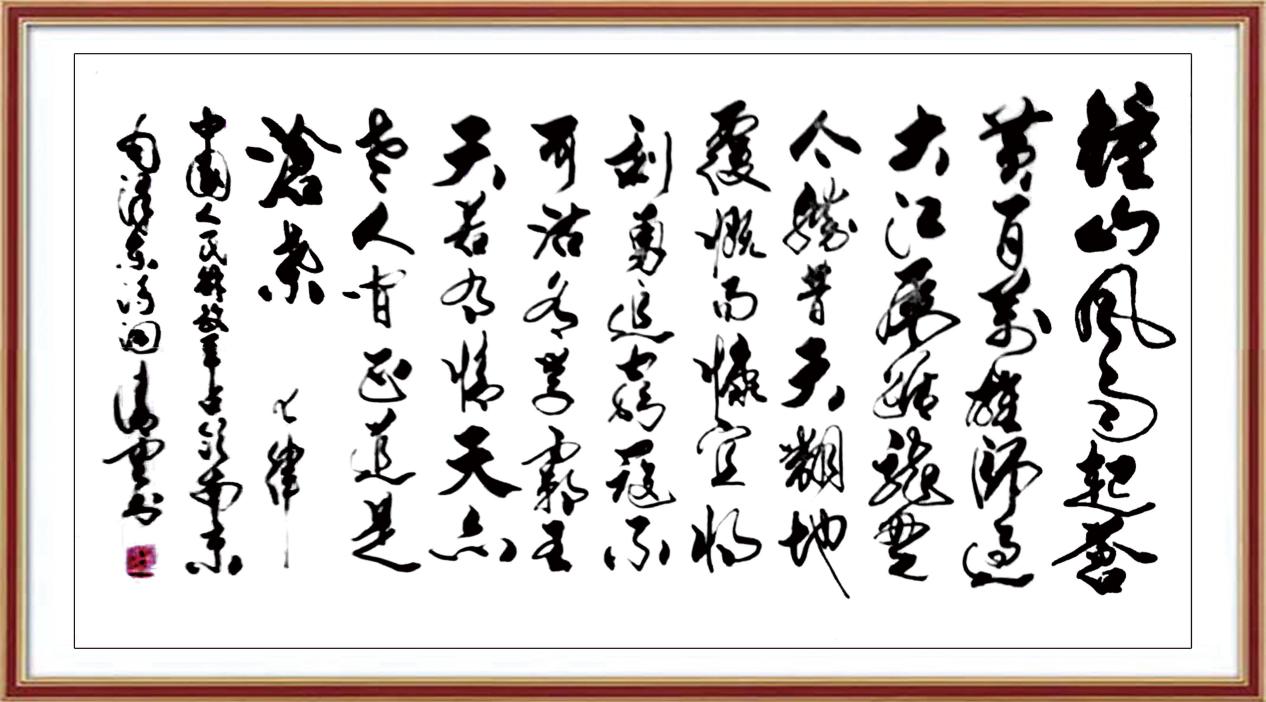 鐘山风雨起蒼
黄百萬雄師過
大江虎踞龍盘
今勝昔天翻地
覆慨而慷宜将
剩勇追窮寇不
可沽名学霸王
天若有情天亦
老人间正道是
滄桑 七律
中國人民解放军占领南京
泽东诗词 书